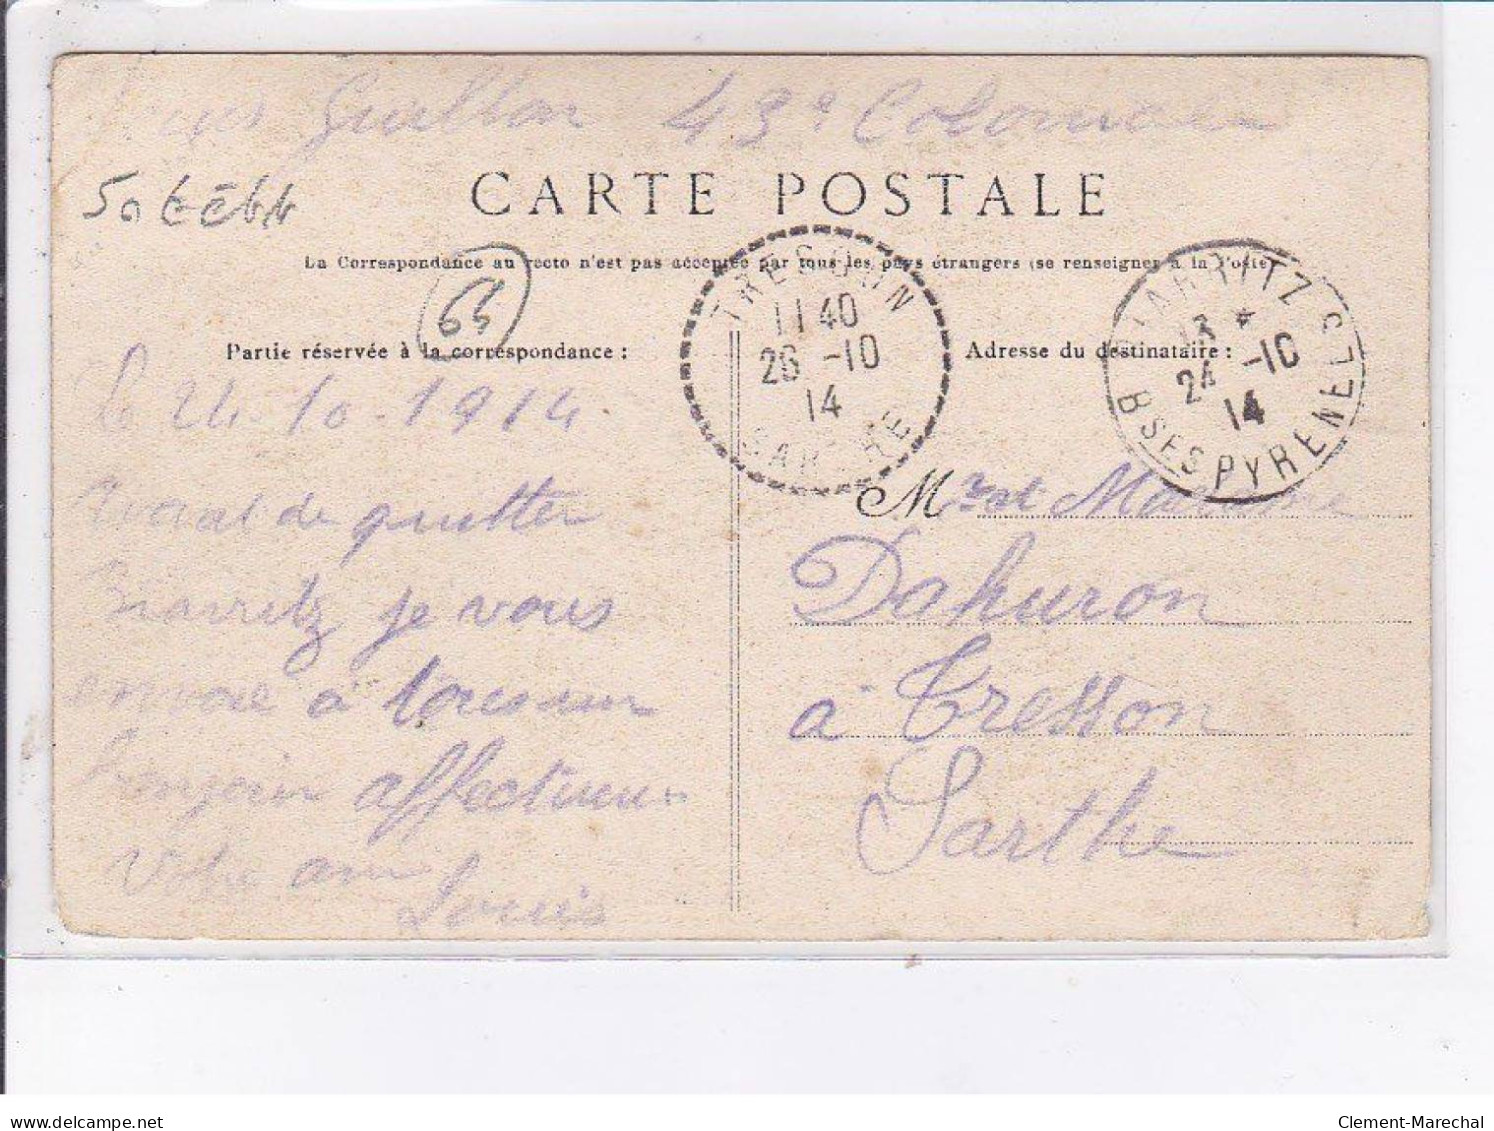 Guillon 43e Colonial
CARTE POSTALE
La Correspondance au recto n'est pas acceptée par tous les pays étrangers (se renseigner à la Poste)
64
TRESSON
11 40
26 -10
14
SARTHE
BIARRITZ
13 *
24 -10
14
BSES PYRENEES
Partie réservée à la correspondance :
Adresse du destinataire :
Le 24-10-1914
de quitter
Biarritz je vous
envoie à tous un
bonjour affectueux
Votre ami
Louis
Mr et Madame
Dahuron
à Tresson
Sarthe
delcampe.net
Clement-Marechal